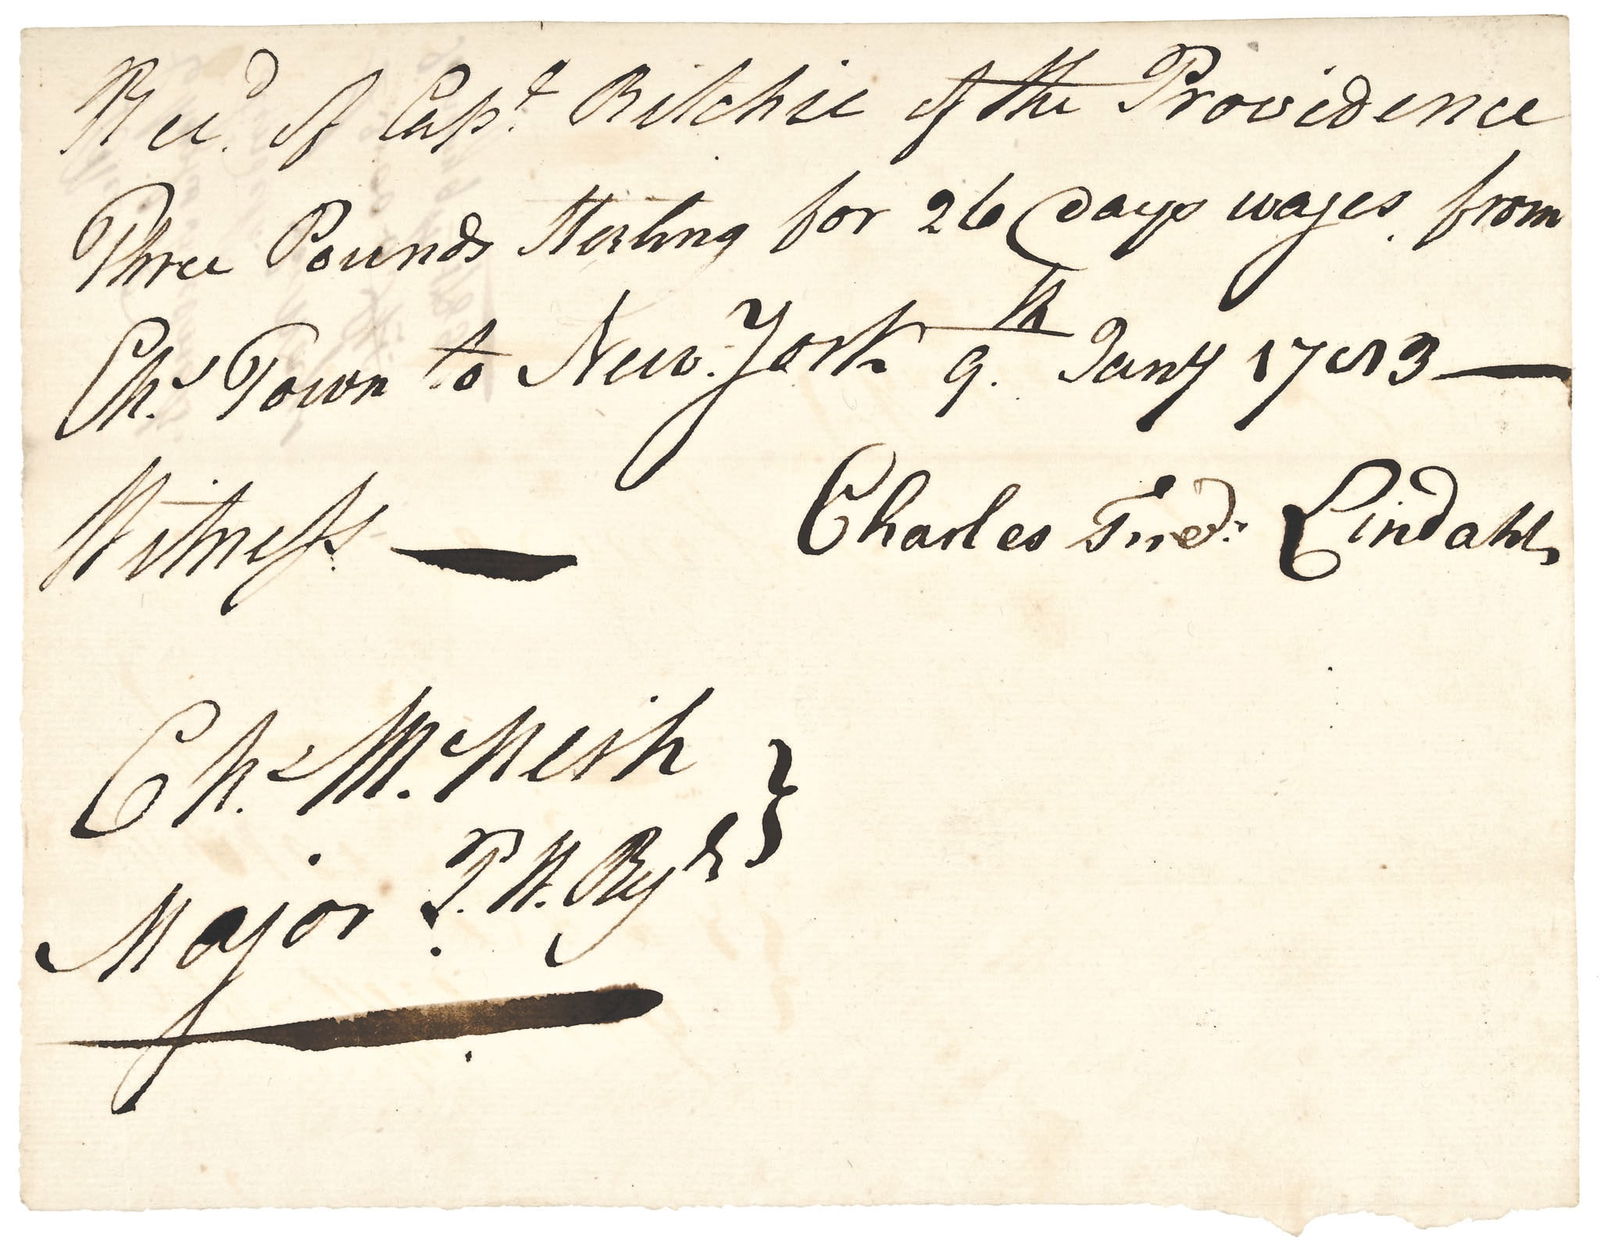 Recd. of Capt. Ritchie of the Providence
Three Pounds Sterling for 26 Days wages from
Chs. Town to New York 9th. Jany 1783
Witness
Charles Fred. Lindahl
Chs. McNesh
Major P. W.